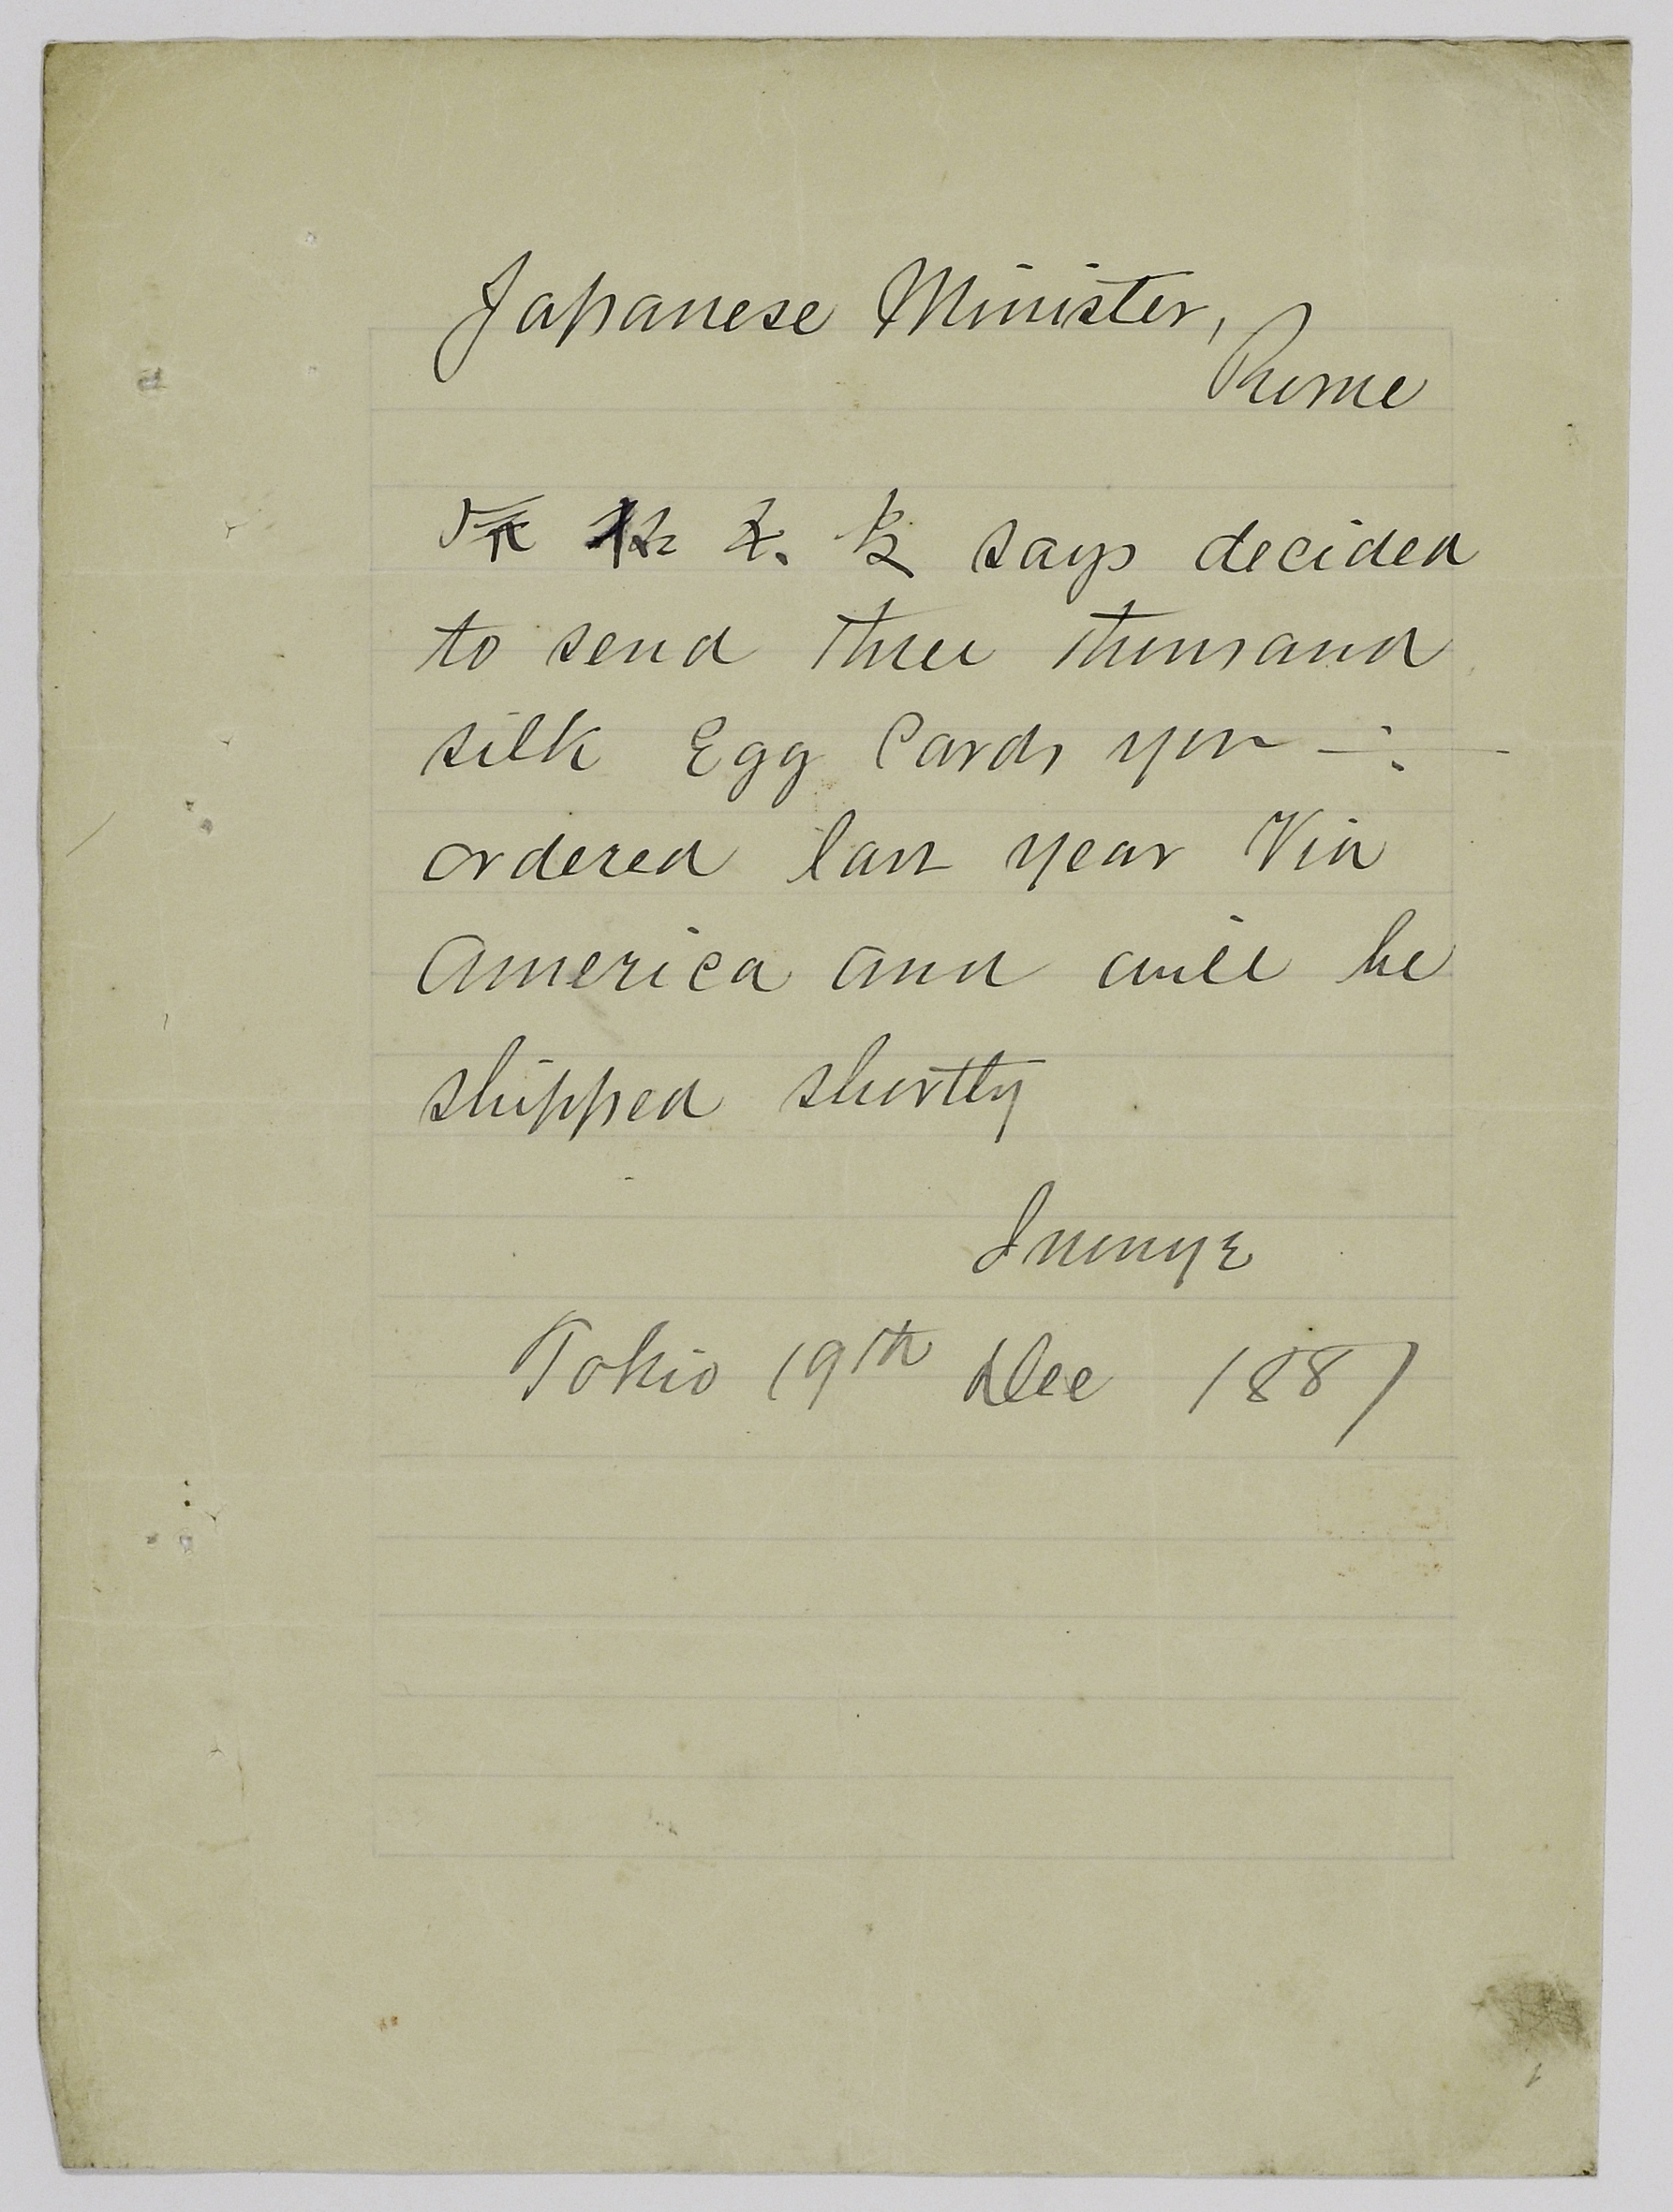 Japanese Minister,
Rome
says decided
to send three thousand
silk Egg Cards you —
ordered last year Via
America and will be
shipped shortly
Inouye
Tokio 19th Dec 1887